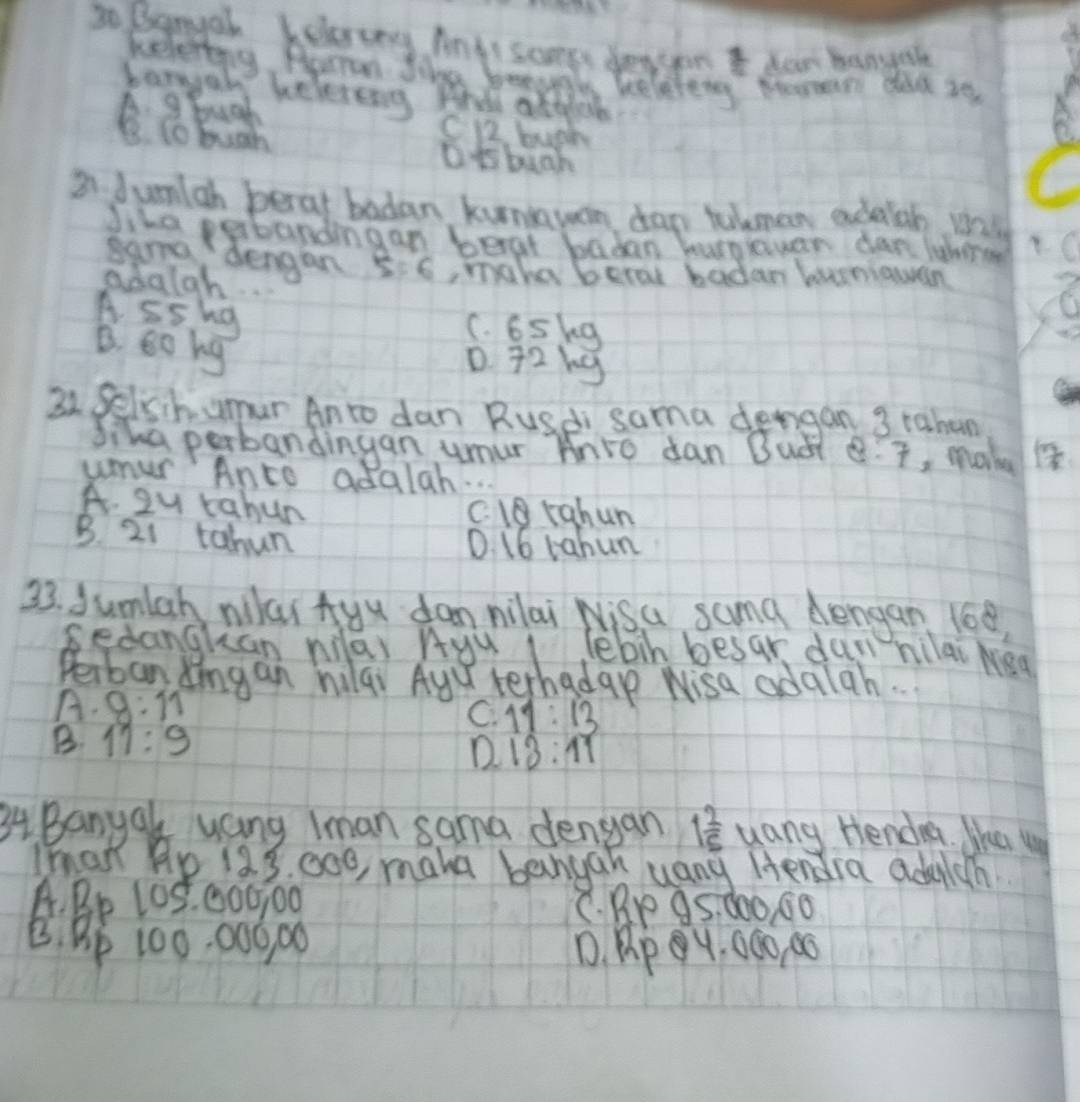 30 Banyak kelereng Andi sama dengan dari banyak
kelereng Jika kelereng ada 20,
banyak kelereng Andi adalah...
A. 9 buah C. 12 buah
B. 10 buah D. 15 buah
31. Jumlah berat badan kurniawan dan lukman adalah
Jika perbandingan berat badan kurniawan dan
sama dengan 5:6, maka berat badan kurniawan
adalah...
A. 55 kg C. 65 kg
B. 60 kg D. 72 kg
32 Selsih umur Anto dan Rusdi sama dengan 3 tahun
Jika perbandingan umur Anto dan Budi 8:7, maka
umur Anto adalah...
A. 24 tahun C. 18 tahun
B. 21 tahun D. 16 tahun
33. Jumlah nilai Ayu dan nilai Nisa sama dengan 168,
Sedangkan nilai Ayu lebih besar dari nilai
Perbandingan nilai Ayu terhadap Nisa adalah...
A. 9:11 C. 11:13
B. 11:9 D. 13:11
34 Banyak uang Iman sama dengan uang Hendra. Jika
Iman Rp 123.000, maka banyak uang Hendra adalah..
A. Rp 105.000,00 C. Rp 95.000,00
B. Rp 100.000,00 D. Rp 84.000,00